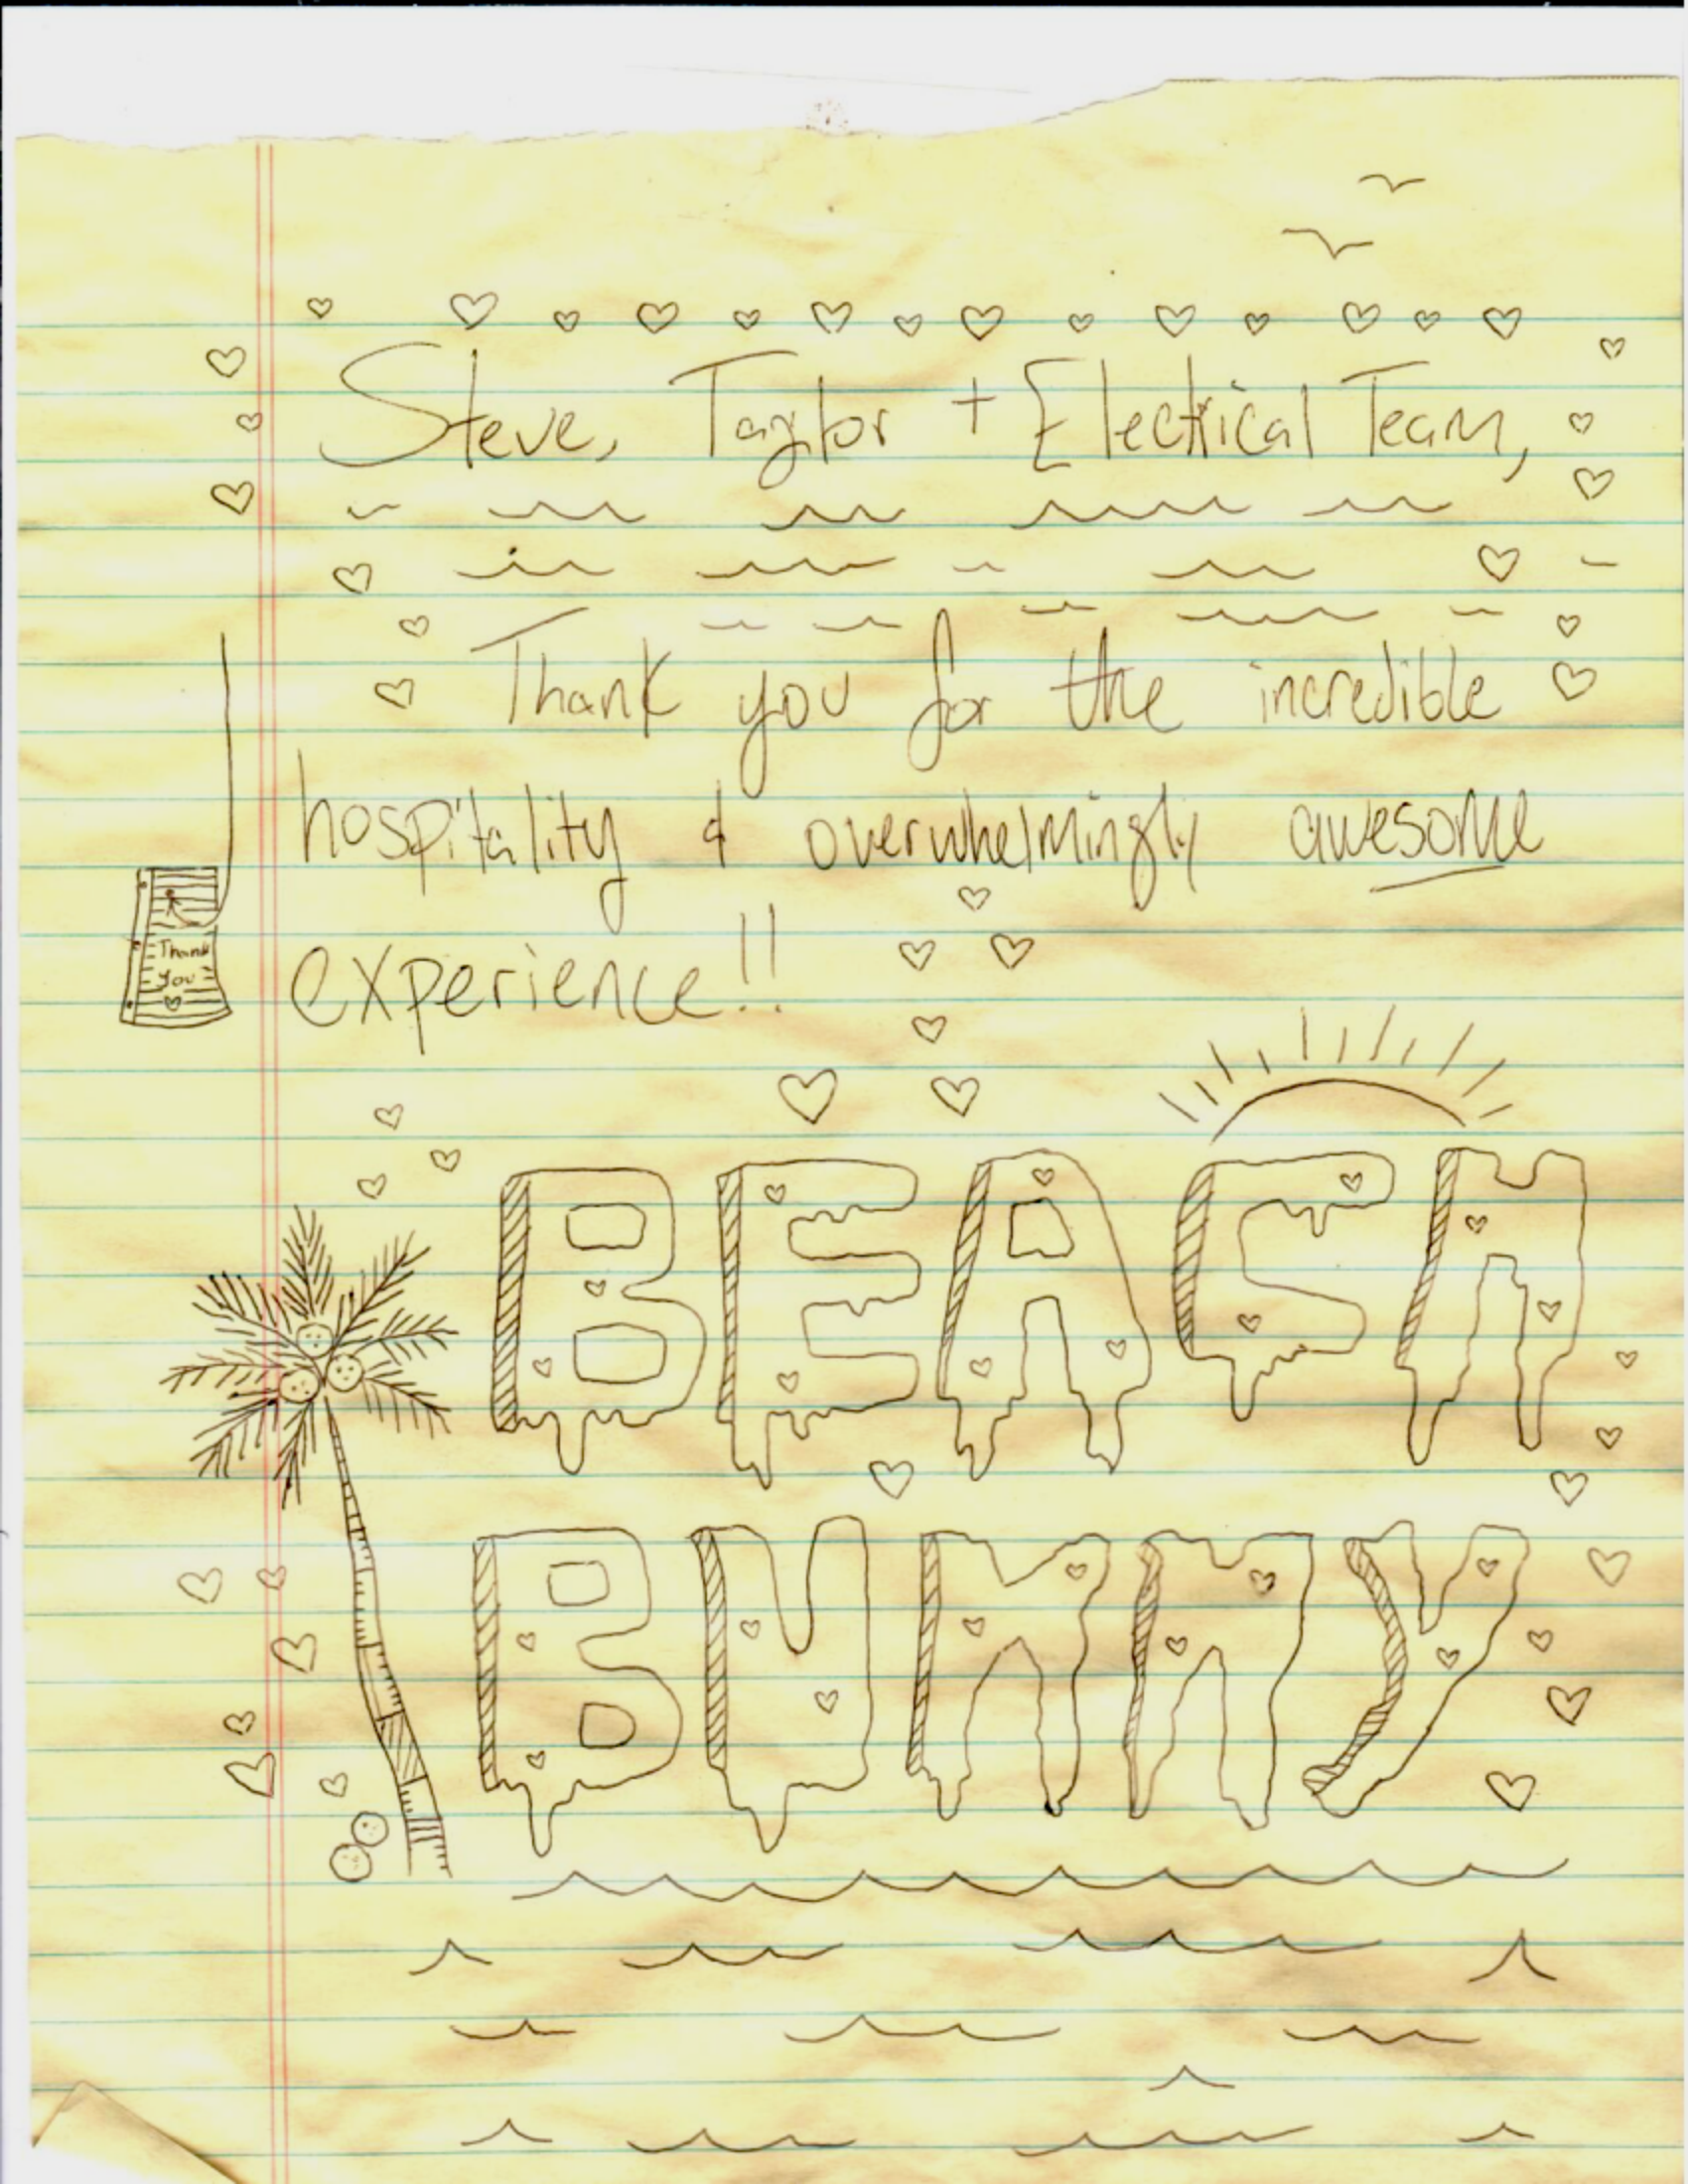 Steve, Taylor + Electrical Team,
Thank you for the incredible
hospitality & overwhelmingly awesome
experience!!
Thank
You
BEACH
BUNNY